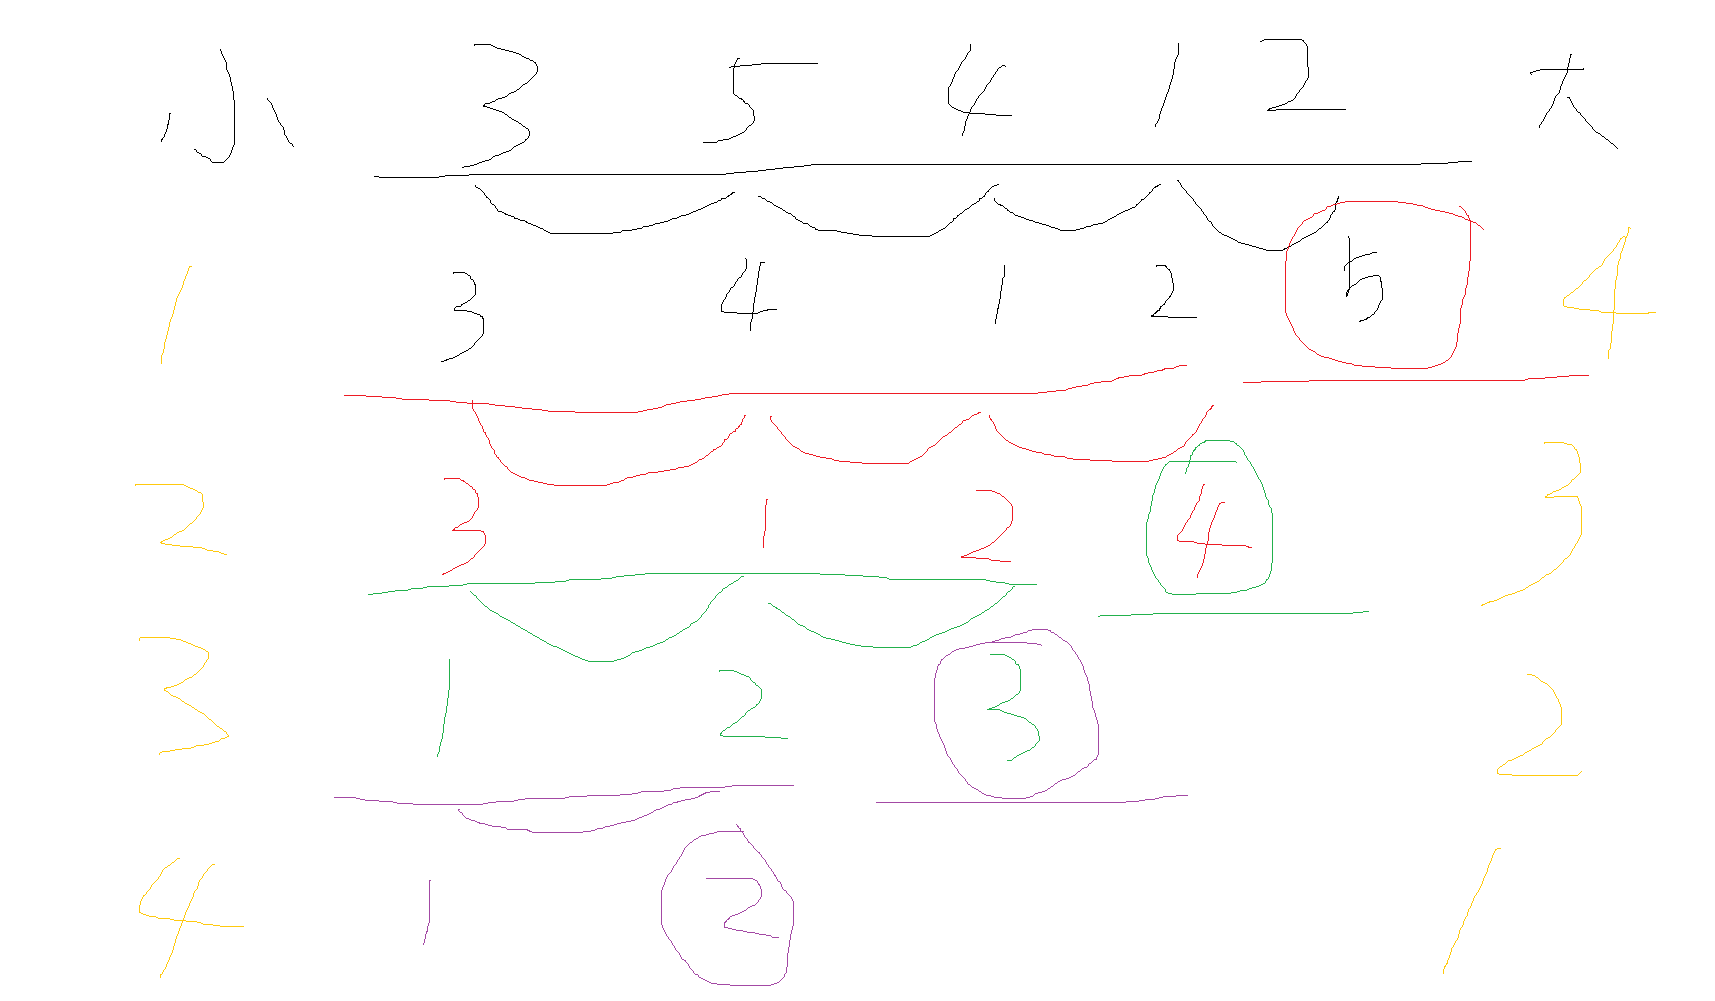 小 3 5 4 1 2 大
1 3 4 1 2 5 4
2 3 1 2 4 3
3 1 2 3 2
4 1 2 1